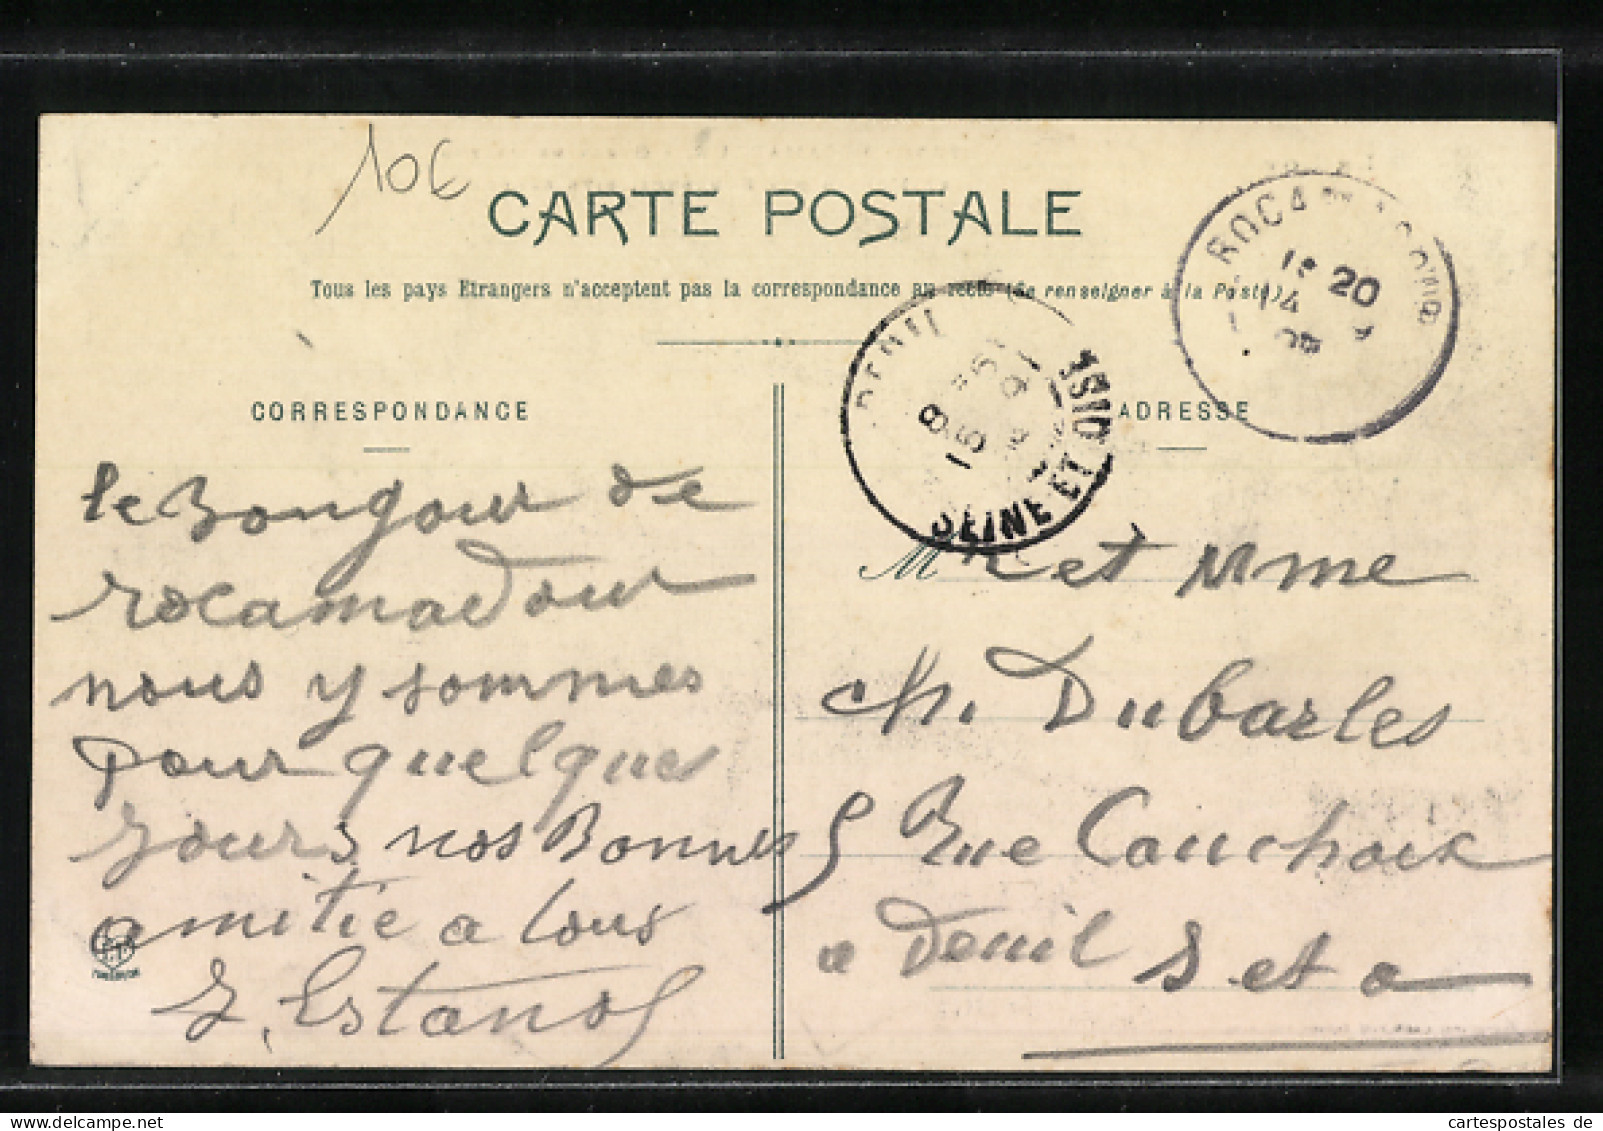 10€
CARTE POSTALE
Tous les pays Etrangers n'acceptent pas la correspondance au recto (se renseigner à la Poste)
ROCAMADOUR
20
14
DEUIL
SEINE ET OISE
8
15
CORRESPONDANCE
le Bonjour de
rocamadour
nous y sommes
pour quelques
jours nos Bonnes
amitie a tous
J. Estanol
ADRESSE
Mr et Mme
Ch. Dubarles
5 Rue Cauchoix
a Deuil S et O
cartespostales de